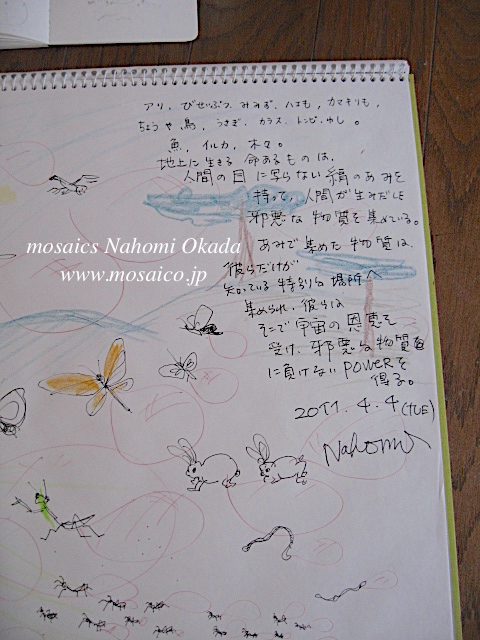 アリ、びせいぶつ、みみず、ハエも、カマキリも、
ちょうや、鳥、うさぎ、カラス、トンビ、
魚、イルカ、木々。
地上に生きる 命あるものは、
人間の目に写らない 絹のあみを
持って、人間が生みだした
邪悪な物質を集めている。
あみで集めた物質は、
彼らだけが
知っている 特別な場所へ
集められ、彼らは
そこで宇宙の恩恵を
受け、邪悪な物質
に負けない POWERを
得る。
2011.4.4 (TUE)
Nahomi
mosaics Nahomi Okada
www.mosaico.jp